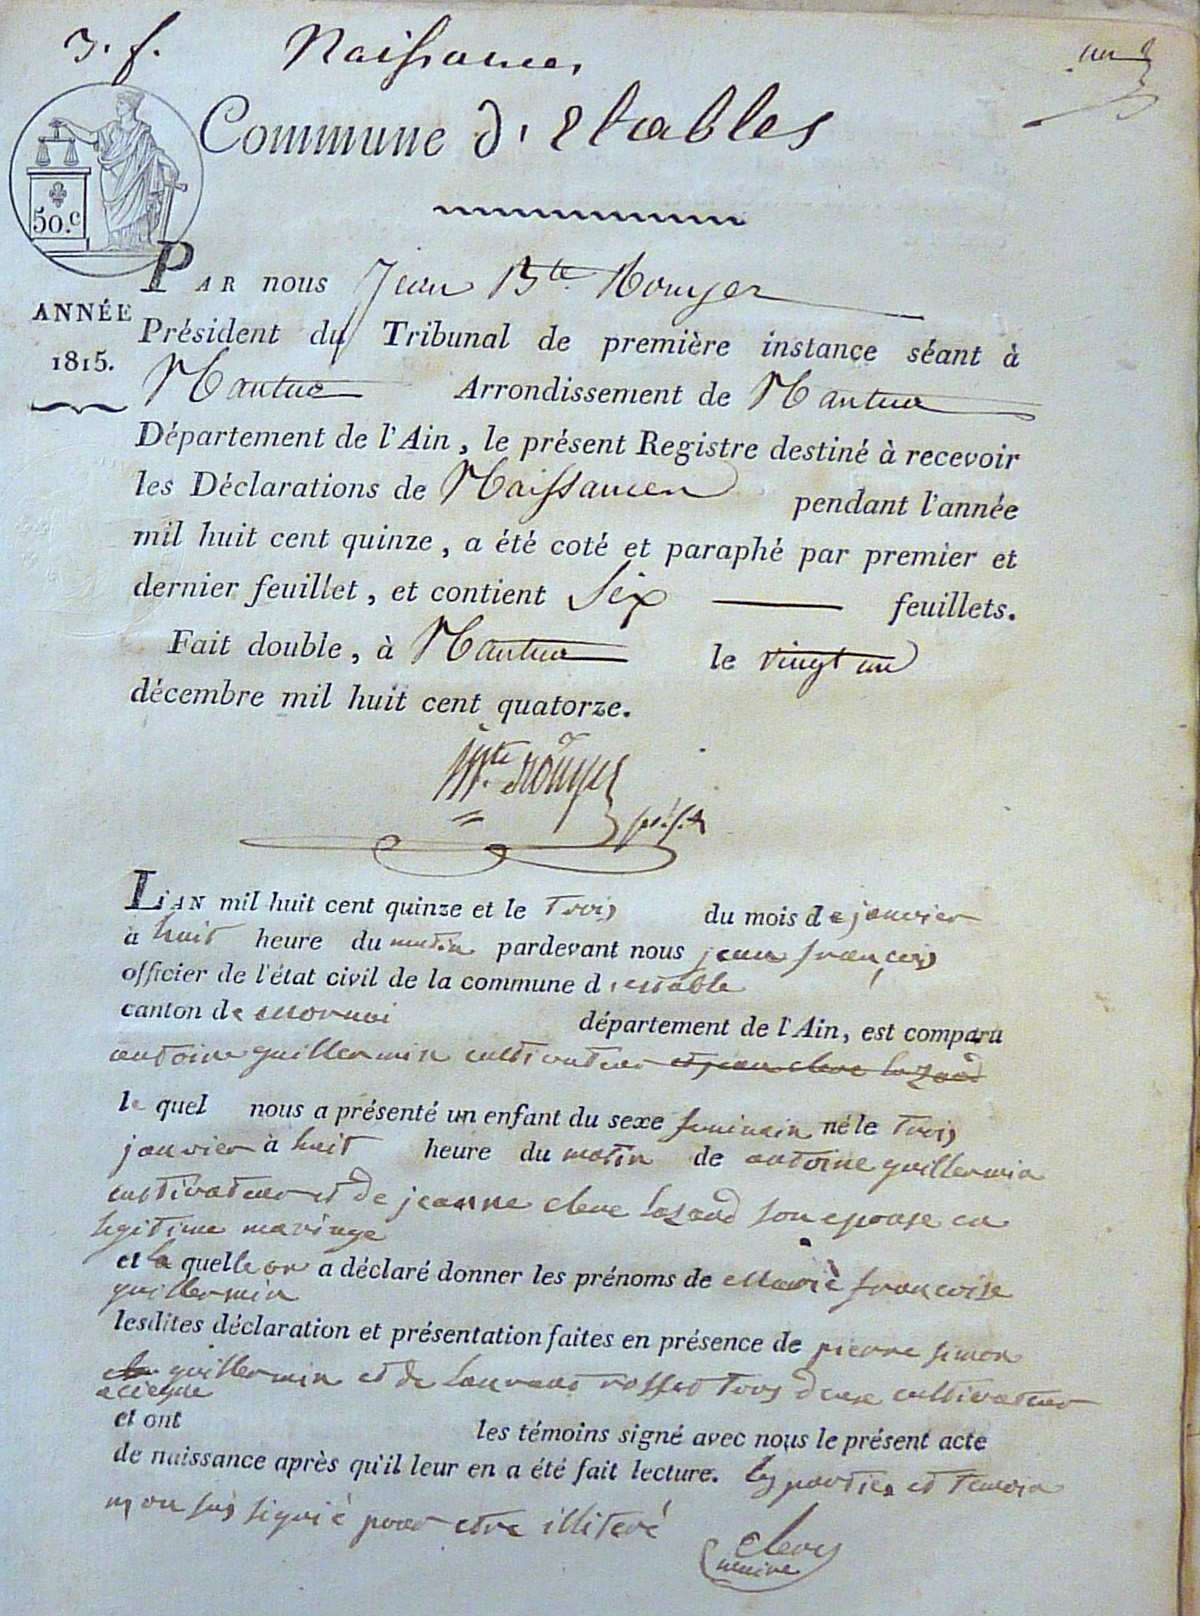 3. f. Naissances
un
Commune d'Etables
50.c
ANNÉE
1815.
PAR nous Jean Bte. Rouyer
Président du Tribunal de première instance séant à
Nantua Arrondissement de Nantua
Département de l'Ain, le présent Registre destiné à recevoir
les Déclarations de Naissances pendant l'année
mil huit cent quinze, a été coté et paraphé par premier et
dernier feuillet, et contient Six feuillets.
Fait double, à Nantua le vingt un
décembre mil huit cent quatorze.
Rouyer
L'AN mil huit cent quinze et le trois du mois de janvier
a huit heure du matin pardevant nous jean françois
officier de l'état civil de la commune d
canton de département de l'Ain, est comparu
antoine guillermin cultivateur et jean clere lazard
le quel nous a présenté un enfant du sexe feminain né le trois
janvier à huit heure du matin de antoine guillermin
cultivateur et de jeanne clere lazard son epouse en
legitime mariage
et la quelle on a déclaré donner les prénoms de marie françoise
guillermin
lesdites déclaration et présentation faites en présence de pierre simon
guillermin et de laurans rosset tous deux cultivateur
et ont les témoins signé avec nous le présent acte
de naissance après qu'il leur en a été fait lecture. les parties et temoin
n on signié pour etre illiteré
clere
maire